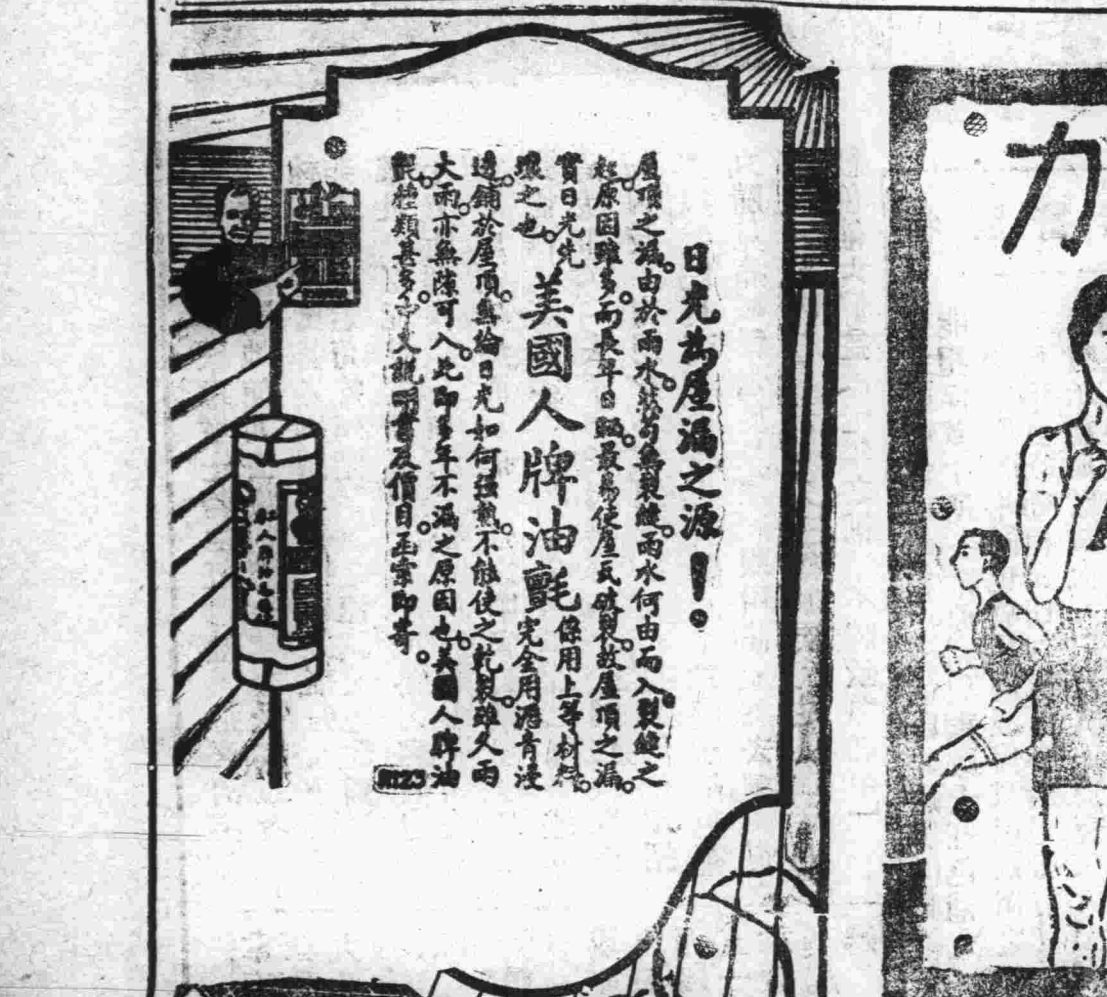 日光為屋漏之源！
屋頂之漏。由於雨水。然苟無裂縫。雨水何由而入。裂縫之
起。原因雖多。而長年日晒。最易使屋瓦破裂。故屋頂之漏。
實日光先
壞之也。
美國人牌油氈
係用上等材料。
完全用瀝青浸
透。鋪於屋頂。無論日光如何强熱。不能使之乾裂。雖久雨
大雨。亦無隙可入。此即多年不漏之原因也。美國人牌油
氈種類甚多。中文說明書及價目。函索即寄。
R123
力